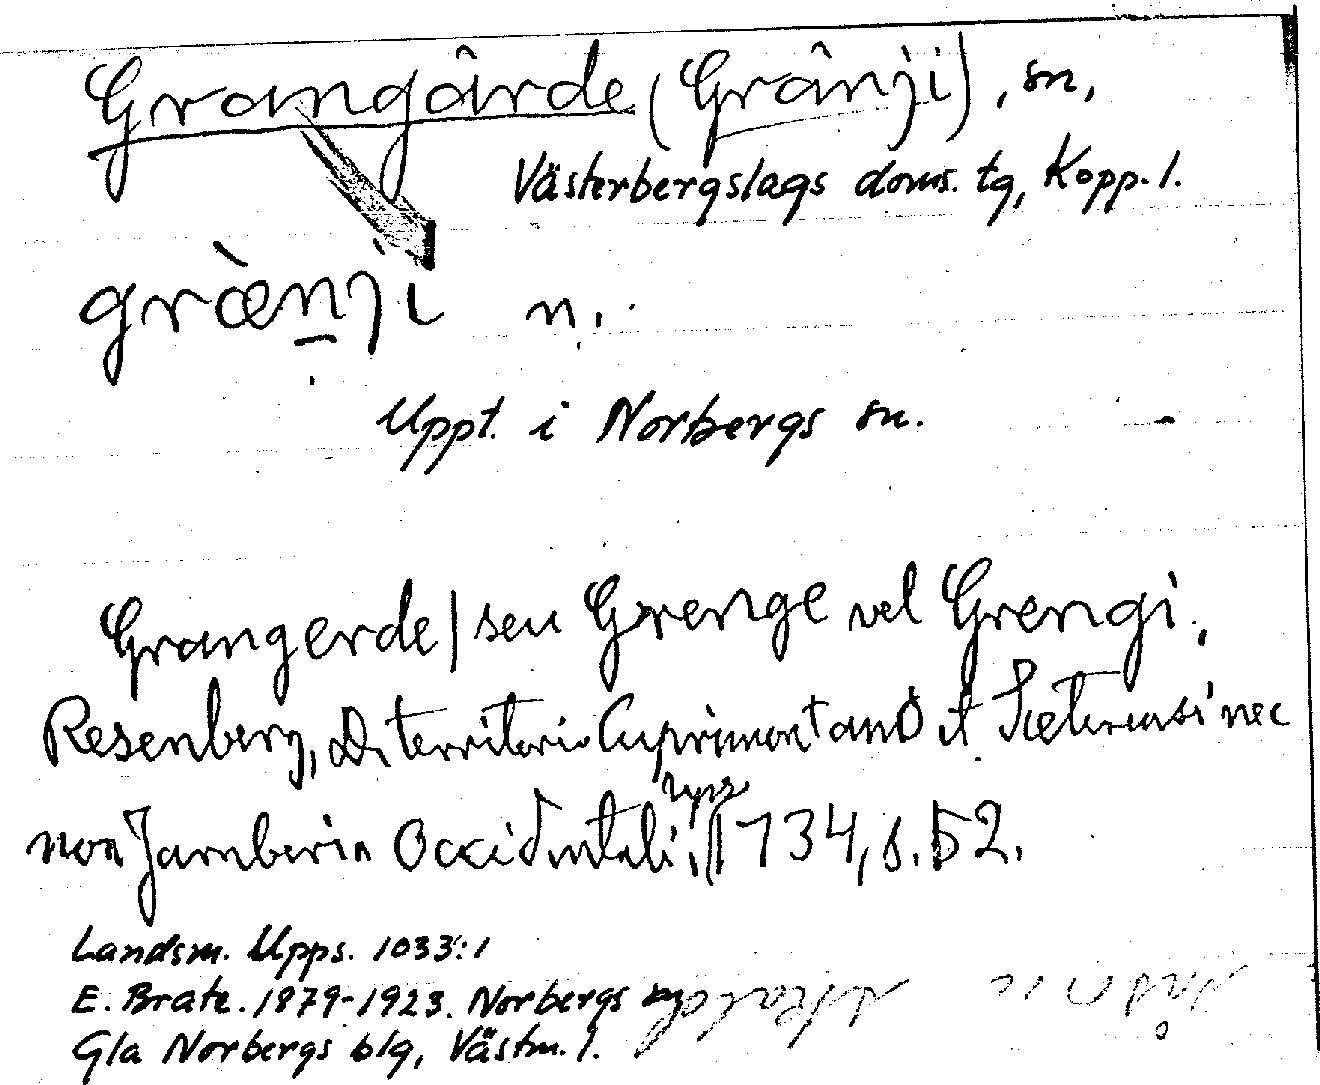 Grangärde (Grânji), sn,
Västerbergslags doms. tg, Kopp. l.
græ̀n̠ji n.
Uppt. i Norbergs sn.
Grangerde/seu Grenge vel Grengi,
Resenberg, De territorio Cuprimontano et Sæterensi nec
non Jarnberia Occidentali, Ups 1734, s. 52.
Landsm. Upps. 1033:1
E. Brate. 1879-1923. Norbergs sn,
Gla Norbergs blg, Västm. l.